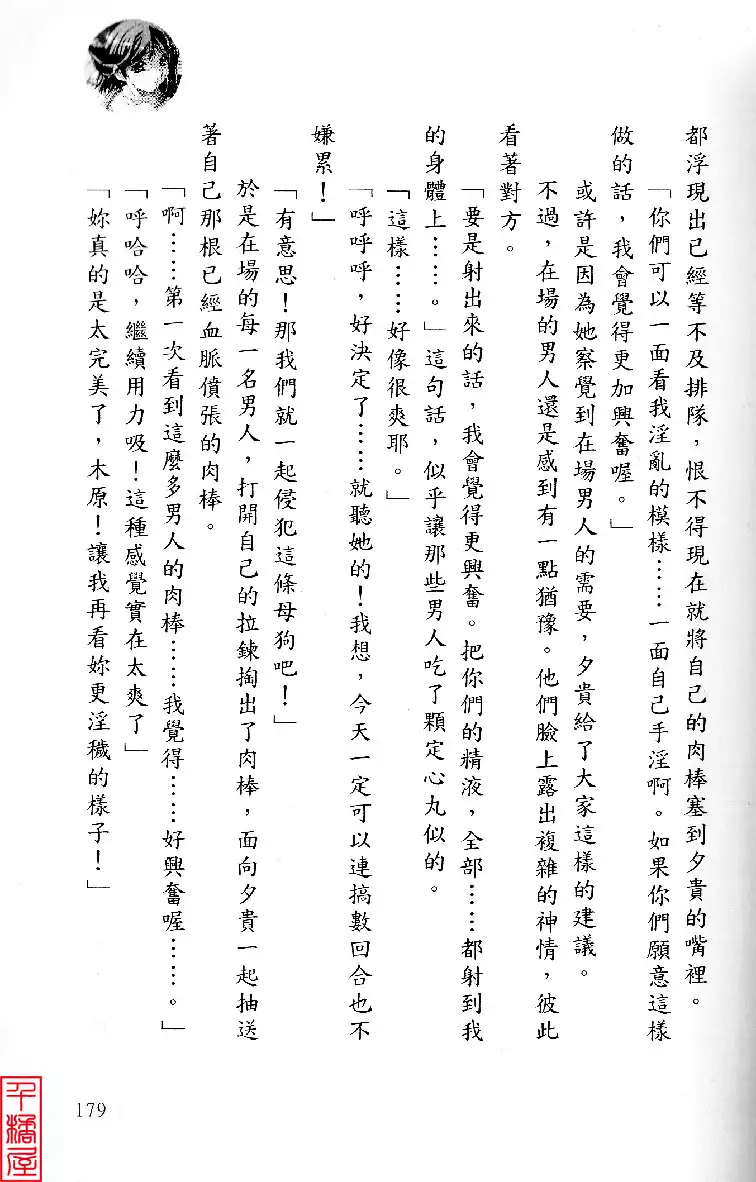 都浮現出已經等不及排隊，恨不得現在就將自己的肉棒塞到夕貴的嘴裡。
「你們可以一面看我淫亂的模樣……一面自己手淫啊。如果你們願意這樣
做的話，我會覺得更加興奮喔。」
或許是因為她察覺到在場男人的需要，夕貴給了大家這樣的建議。
不過，在場的男人還是感到有一點猶豫。他們臉上露出複雜的神情，彼此
看著對方。
「要是射出來的話，我會覺得更興奮。把你們的精液，全部……都射到我
的身體上……。」這句話，似乎讓那些男人吃了顆定心丸似的。
「這樣……好像很爽耶。」
「呼呼呼，好決定了……就聽她的！我想，今天一定可以連搞數回合也不
嫌累！」
「有意思！那我們就一起侵犯這條母狗吧！」
於是在場的每一名男人，打開自己的拉鍊掏出了肉棒，面向夕貴一起抽送
著自己那根已經血脈僨張的肉棒。
「啊……第一次看到這麼多男人的肉棒……我覺得……好興奮喔……。」
「呼哈哈，繼續用力吸！這種感覺實在太爽了」
「妳真的是太完美了，木原！讓我再看妳更淫穢的樣子！」
179
千橘屋